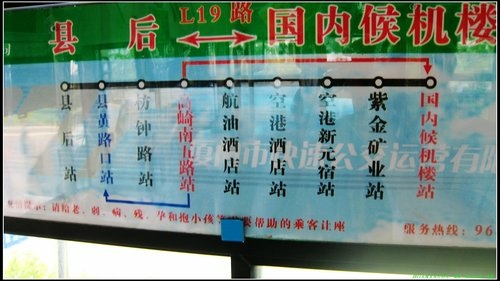 L19路
县后 国内候机楼
县后站
县黄路口站
枋钟路站
高崎南五路站
航油酒店站
空港酒店站
空港新元宿站
紫金矿业站
国内候机楼站
厦门市快速公交运营有限
提示：请给老、弱、病、残、孕和抱小孩 要帮助的乘客让座
服务热线：96